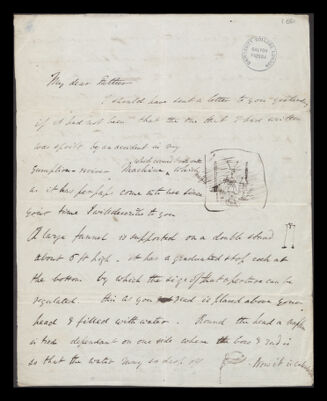 My dear Father
I should have sent a letter to you yesterday
if it had not been that the one that I had written
was spoilt by an accident in my
Gumption-reviver Machine, which
as it has perhaps come into use since
your time I will describe to you
A large funnel is supported on a double stand
about 5 ft high. it has a graduated stop cock at
the bottom by which the size of that aperture can be
regulated. this as you read is placed above your
head & filled with water. Round the head a
is tied dependant on one side where the bow & end is
so that the water may so drop off Now it is